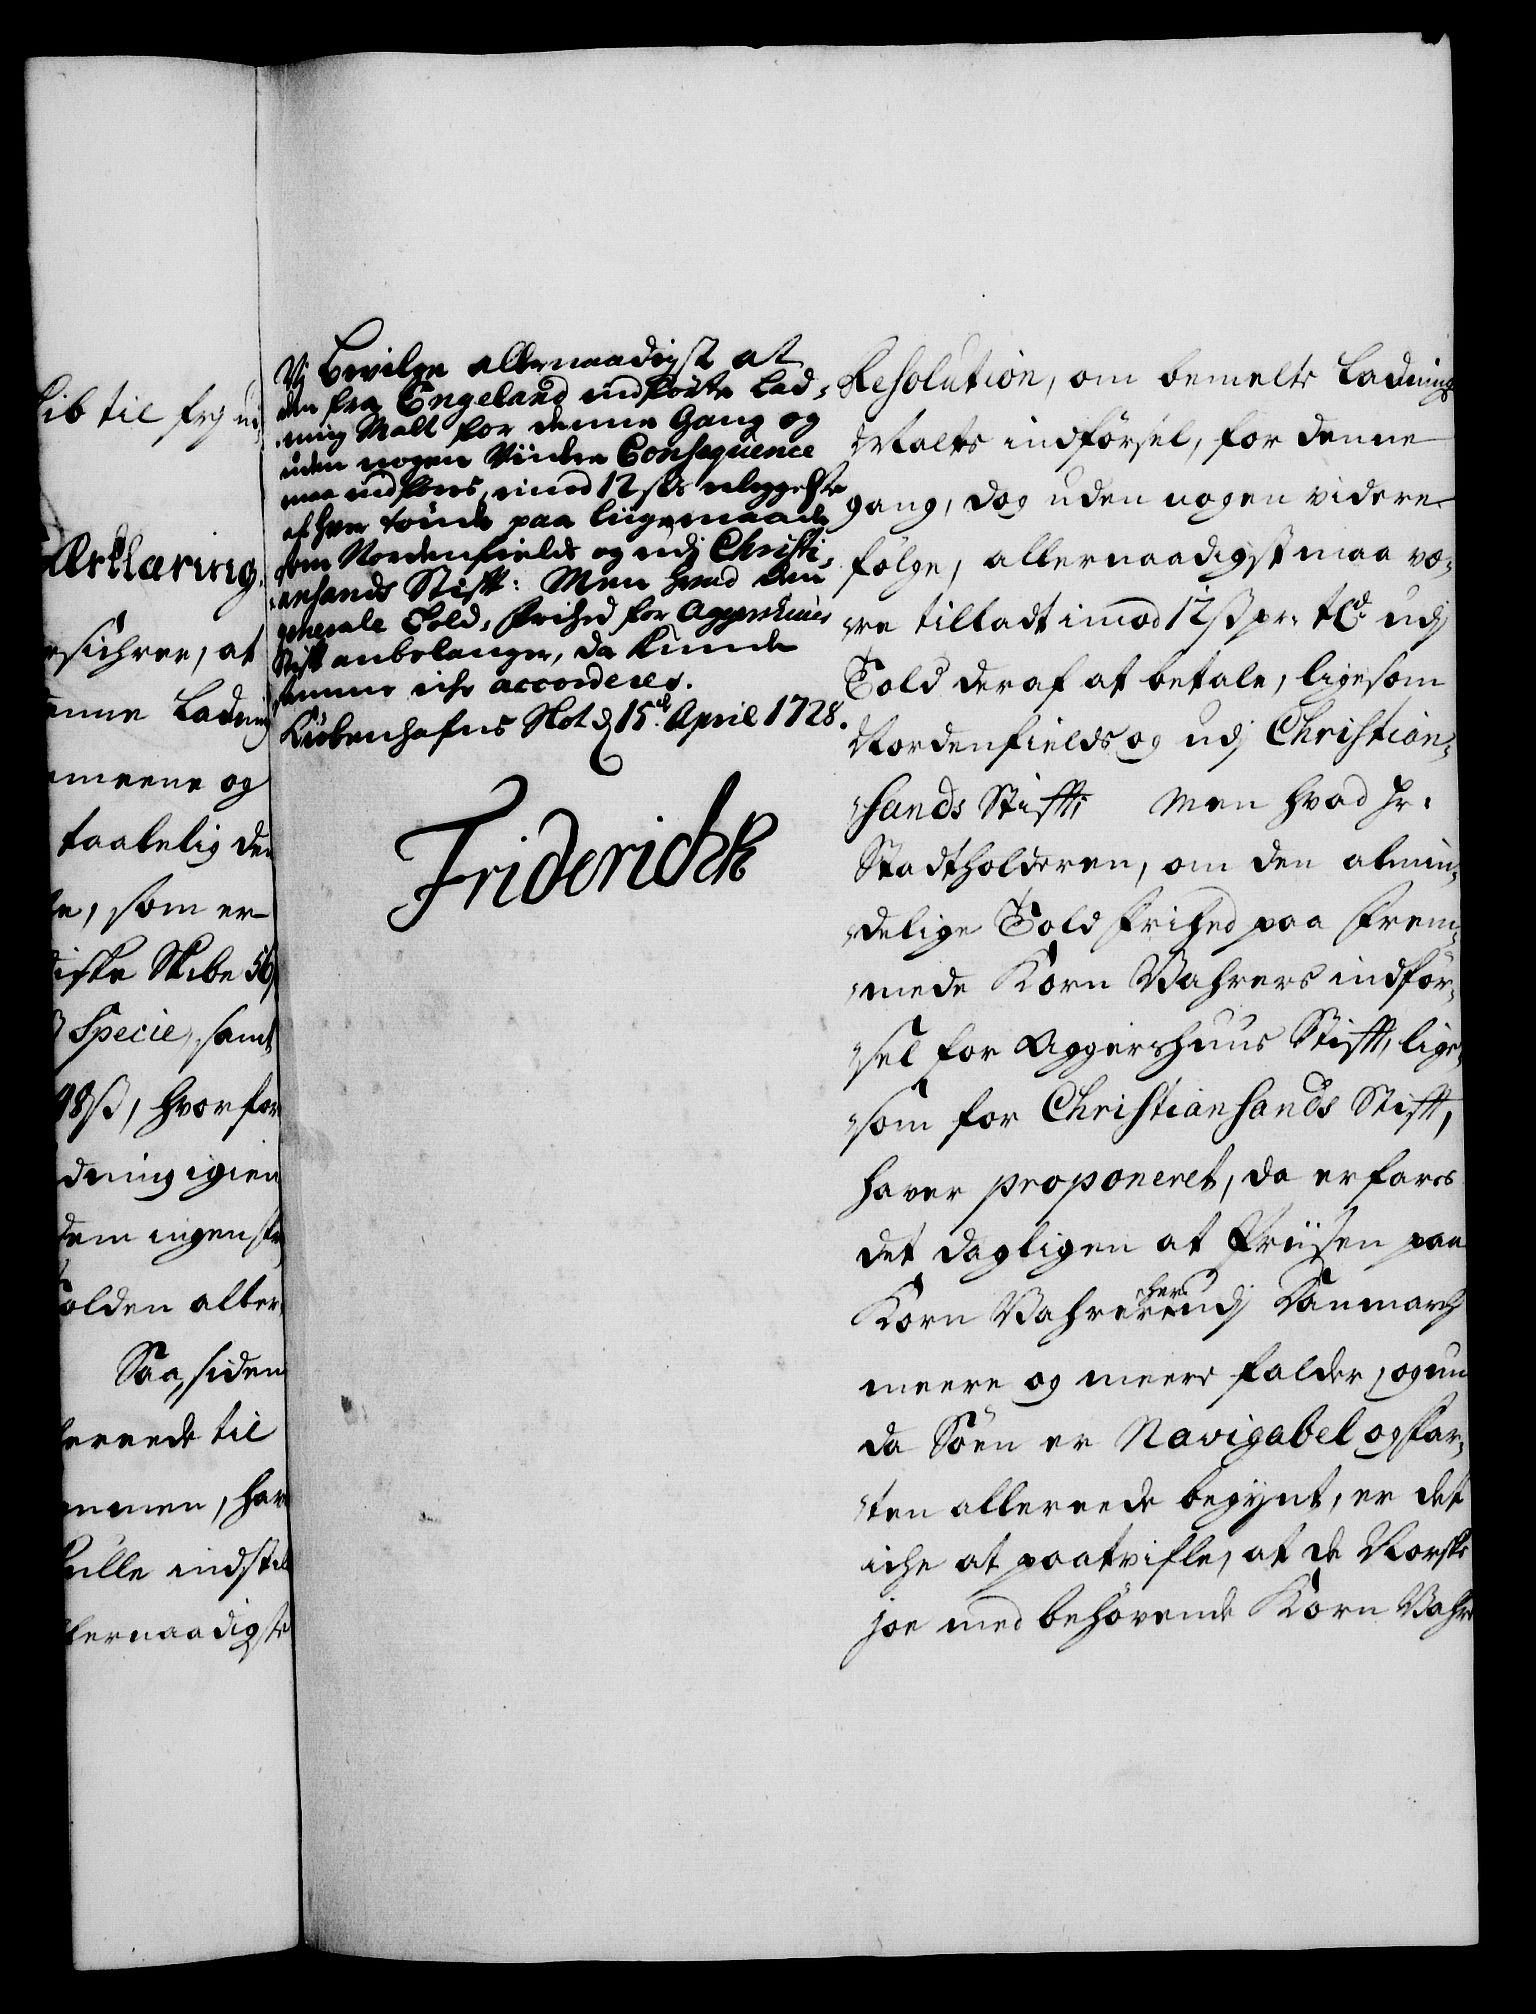 lib til frj ud
Erklæring.
siihree, at
enne Ladning
meene og
taalelig de
le, som er
iske Skibe 56
Specie, samt
48ß, hvorfor
dning igien
dem ingenste
olden aller
Saa, siden
lereede til
ommen, har
kulle indstil
lernaadigste
Vj bevilge allernaadigst at
den fra Engeland indførte Lad-
ning Malt for denne Gang og
uden nogen Viidre Conseqüence
maa indføres, imod 12 sk erleggelse
af hver tønde paa liige maade
som Nordenfields og udj Christi-
ansands Stift: Men hvad den
generale Told-frihed for Aggershuus
Stift anbelanger, da kunde
samme iche accorderes.
Kiøbenhafns Slot d 15de April 1728.
Friderich R
Resolution, om bemelte Ladnings
Malts indførsel, for denne
gang, dog uden nogen videre
følge, allernaadigst maa væ-
re tilladt imod 12ß pr. tde udj
Told deraf at betale, ligesom
Nordenfields og udj Christian-
sands Stift; Men hvad Hr.
Stadtholderen, om den almin-
delige Told frihed paa frem-
mede Korn Vahrers indför-
sel for Aggershuus Stifft, lige-
som for Christiansands Stifft,
haver proponeret, da erfares
det dagligen at Priisen paa
Korn Vahrerne her udj Danmarch
meere og meere falder, og nu
da Söen er Navigabel og far-
ten allereede begynt, er det
iche at paatvifle, at de Norske
joe med behövende Korn Vahre